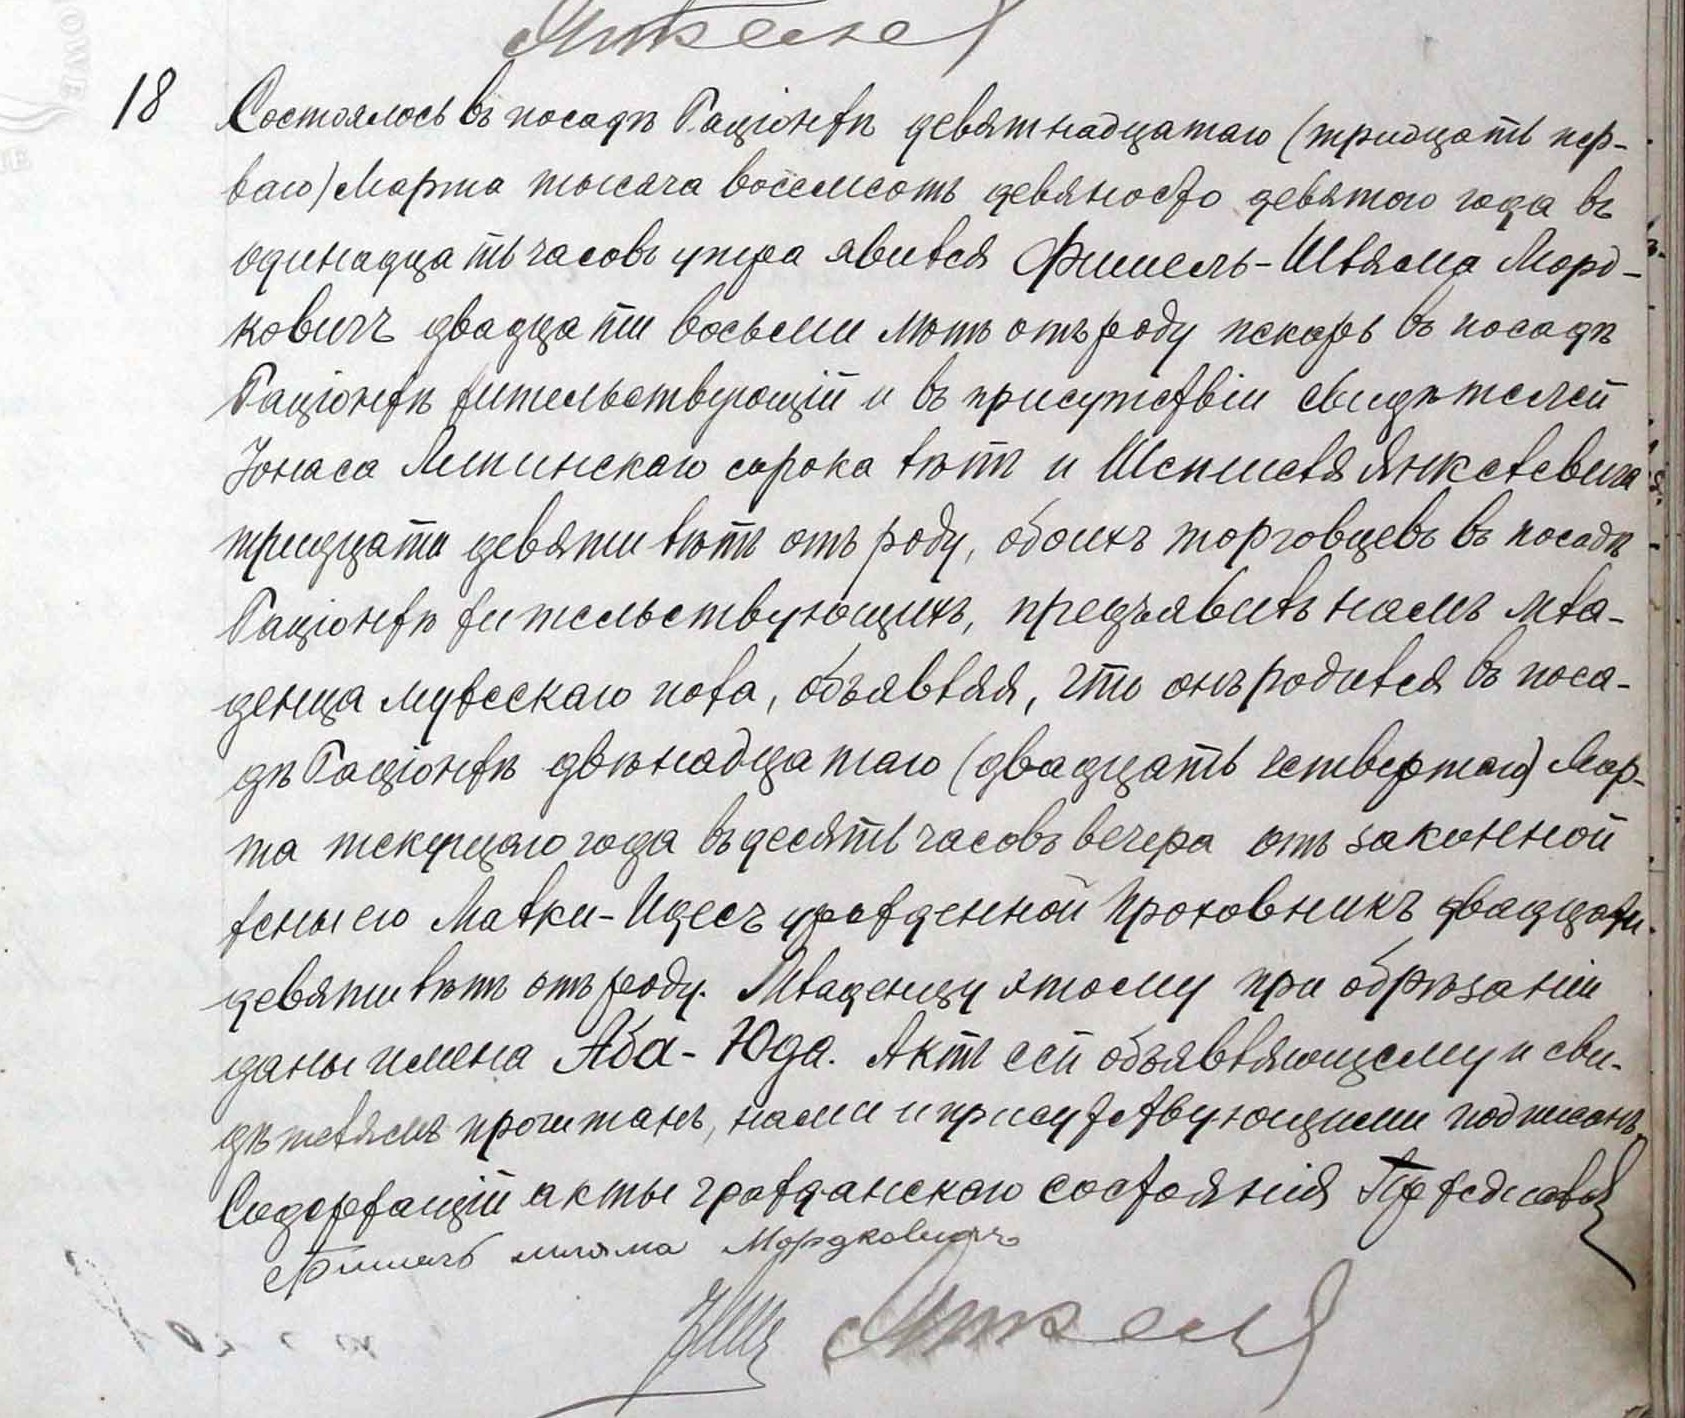 18
Состоялось въ посадѣ Раціонжѣ девятнадцатаго (тридцать пер-
ваго) Марта тысяча восемьсотъ девяносто девятого года въ
одинадцать часовъ утра явился Фишель-Шляма Морд-
ковичъ двадцати восьми лѣтъ отъ роду пекарь въ посадѣ
Раціонжѣ жительствующій и въ присутствіи свидѣтелей
Іонаса Липинскаго сорока лѣтъ и Шепшеля Янкелевича
тридцати девяти лѣтъ отъ роду, обоихъ торговцевъ въ посадѣ
Раціонжѣ жительствующихъ, предъявилъ намъ мла-
денца мужескаго пола, объявляя, что онъ родился въ поса-
дѣ Раціонжѣ двѣнадцатаго (двадцать четвертаго) Мар-
та текущаго года въ десять часовъ вечера отъ законной
жены его Малки-Идесъ урожденной Проховникъ двадцати
девяти лѣтъ отъ роду. Младенцу этому при обрѣзаніи
даны имена Аба-Юда. Актъ сей объявляющему и сви-
дѣтелямъ прочитанъ, нами и присутствующими подписанъ
Содержащій акты гражданскаго состоянія
Фишель шляма Мордковичъ